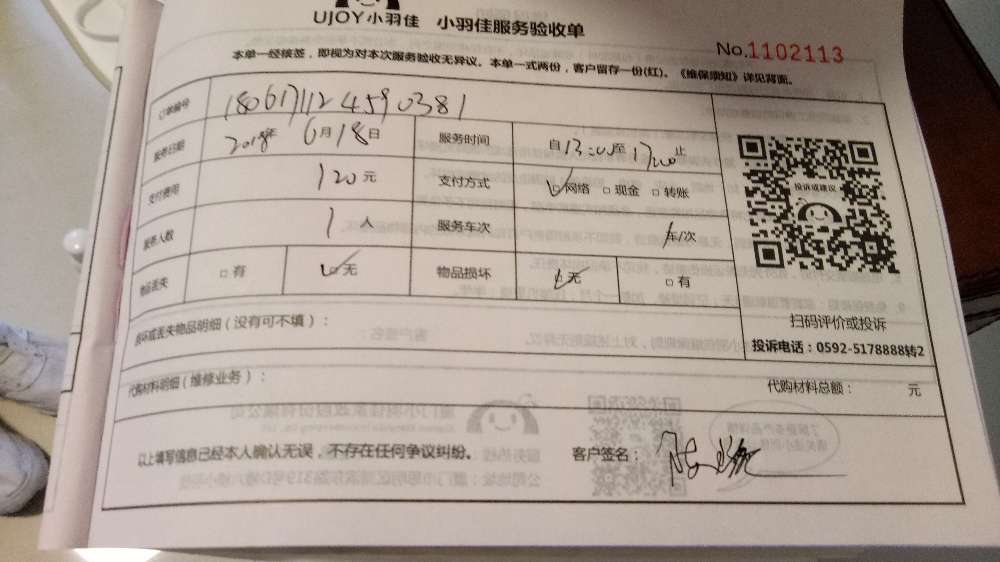 UJOY小羽佳 小羽佳服务验收单
No.1102113
本单一经核签，即视为对本次服务验收无异议。本单一式两份，客户留存一份(红)。《维保须知》详见背面。
订单编号 1806171124590381
服务日期 2018年 6月18日 服务时间 自13:00至17:00止
支付费用 120元 支付方式 网络 现金 转账
服务人数 1人 服务车次 车/次
物品丢失 有 无 物品损坏 无 有
投诉或建议
扫码评价或投诉
投诉电话：0592-5178888转2
损坏或丢失物品明细（没有可不填）：
代购材料明细（维修业务）： 代购材料总额： 元
以上填写信息已经本人确认无误，不存在任何争议纠纷。 客户签名：